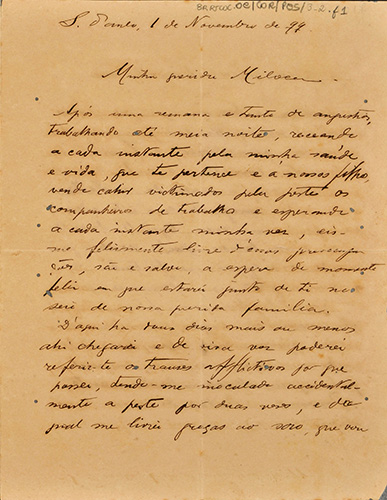 BR RJCOC OC/COR/PES/3-2.f1
S. Paulo, 1 de Novembro de 99
Minha querida Miloca
Após uma semana e tanto de angustias,
trabalhando até meia noite, receando
a cada instante pela minha saúde
e vida, que te pertence e a nossos filhos,
vendo cahir victimados pela peste os
companheiros de trabalho e esperando
a cada instante minha vez, eis-
me felizmente livre d'essas preoccupa-
ções, são e salvo, a espera do momento
feliz em que estarei junto de ti no
seio de nossa querida familia.
D'aqui ha dous dias mais ou menos
ahi chegarei e de viva voz poderei
referir-te os transes afflictivos por que
passei, tendo-me inoculado accidental-
mente a peste por duas vezes, e da
qual me livrei graças ao soro, que vou